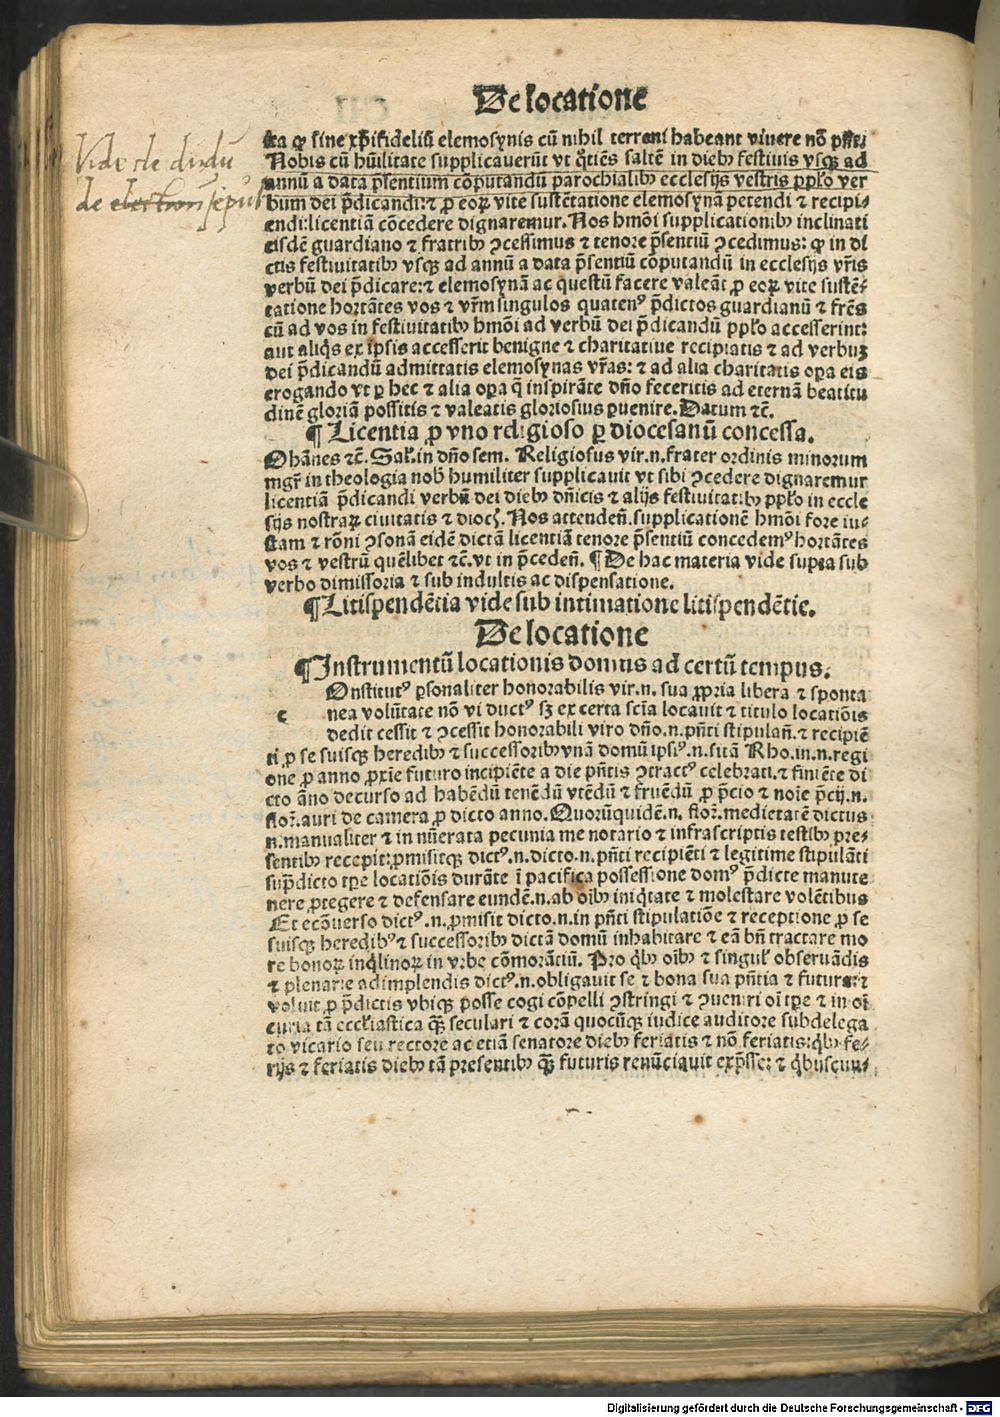 De locatione
ta ꝙ sine xp̄ifideliū elemosynis cū nihil terreni habeant viuere nō pñt:
Nobis cū hūilitate supplicauerūt vt q̊tiēs saltē in dieb⁹ festiuis vsqꝫ ad
annū a data p̄sentium cōputandū parochialib⁹ ecclesijs vestris pp̄lo ver
bum dei p̄dicandi: ⁊ ꝓ eoꝝ vite sustētatione elemosynā petendi ⁊ recipi-
endi: licentiā cōcedere dignaremur. Nos hmōi supplicationib⁹ inclinati
eisdē guardiano ⁊ fratrib⁹ ꝯcessimus ⁊ tenore p̄sentiū ꝯcedimus: ꝙ in di
ctis festiuitatib⁹ vsqꝫ ad annū a data p̄sentiū cōputandū in ecclesijs vr̄is
verbū dei p̄dicare: ⁊ elemosynā ac questū facere valeāt ꝓ eoꝝ vite sustē-
tatione hortātes vos ⁊ vr̄m singulos quaten⁹ p̄dictos guardianū ⁊ fr̄es
cū ad vos in festiuitatib⁹ hmōi ad verbū dei p̄dicandū pp̄lo accesserint:
aut aliq̇s ex ipsis accesserit benigne ⁊ charitatiue recipiatis ⁊ ad verbuꝫ
dei p̄dicandū admittatis elemosynas vr̄as: ⁊ ad alia charitatis oꝑa eis
erogando vt ꝑ hec ⁊ alia oꝑa q̄ inspirāte dño feceritis ad eternā beatitu
dinē gloriā possitis ⁊ valeatis gloriosius ꝑuenire. Datum ⁊c̄.
¶ Licentia ꝓ vno religioso ꝑ diocesanū concessa.
Ohānes ⁊c̄. Sal̄. in dño sem. Religiosus vir .n. frater ordinis minorum
mgr̄ in theologia nob̄ humiliter supplicauit vt sibi ꝯcedere dignaremur
licentiā p̄dicandi verbū dei dieb⁹ dn̄icis ⁊ alijs festiuitatib⁹ pp̄lo in eccle
sijs nostraꝝ ciuitatis ⁊ dioc̄. Nos attenden̄. supplicationē hmōi fore iu-
stam ⁊ rōni ꝯsonā eidē dictā licentiā tenore p̄sentiū concedem⁹ hortātes
vos ⁊ vestrū quēlibet ⁊c̄. vt in p̄ceden̄. ¶ De hac materia vide supra sub
verbo dimissoria ⁊ sub indultis ac dispensatione.
¶ Litispendētia vide sub intimatione litispendētie.
De locatione
¶ Instrumentū locationis domus ad certū tempus.
c
Onstitut⁹ ꝑsonaliter honorabilis vir .n. sua ꝓpria libera ⁊ sponta
nea volūtate nō vi duct⁹ sꝫ ex certa scīa locauit ⁊ titulo locatiōis
dedit cessit ⁊ ꝯcessit honorabili viro dño .n. pn̄ti stipulan̄. ⁊ recipiē
ti ꝓ se suisqꝫ heredib⁹ ⁊ successorib⁹ vnā domū ipsi⁹ .n. sitā Rho. in .n. regi
one ꝓ anno ꝓxīe futuro incipiēte a die pn̄tis ꝯtract⁹ celebrati. ⁊ finiēte di
cto āno decurso ad habēdū tenēdū vtēdū ⁊ fruēdū ꝓ p̄cio ⁊ noīe p̄cij .n.
flor̄. auri de camera ꝓ dicto anno. Quorūquidē .n. flor̄. medietatē dictus
.n. manualiter ⁊ in nūerata pecunia me notario ⁊ infrascriptis testib⁹ pre-
sentib⁹ recepit: ꝓmisitqꝫ dict⁹ .n. dicto .n. pn̄ti recipiēti ⁊ legitime stipulāti
sup̄dicto tꝑe locatiōis durāte ī pacifica possessione dom⁹ p̄dicte manute
nere ꝓtegere ⁊ defensare eundē .n. ab oīb⁹ inq̇tate ⁊ molestare volētibus
Et ecōuerso dict⁹ .n. ꝓmisit dicto .n. in pn̄ti stipulatiōe ⁊ receptione ꝓ se
suisqꝫ heredib⁹ ⁊ successorib⁹ dictā domū inhabitare ⁊ eā bn̄ tractare mo
re bonoꝝ inq̇linoꝝ in vrbe cōmorātiū. Pro q̇b⁹ oīb⁹ ⁊ singul̄ obseruādis
⁊ plenarie adimplendis dict⁹ .n. obligauit se ⁊ bona sua pn̄tia ⁊ futura: ⁊
voluit ꝓ p̄dictis vbiqꝫ posse cogi cōpelli ꝯstringi ⁊ ꝯueniri oī tꝑe ⁊ in oī
curia tā eccl̄iastica q̄ꝫ seculari ⁊ corā quocūqꝫ iudice auditore subdelega
to vicario seu rectore ac etiā senatore dieb⁹ feriatis ⁊ nō feriatis: q̇b⁹ fe-
rijs ⁊ feriatis dieb⁹ tā presentib⁹ q̄ꝫ futuris renūciauit exp̄sse: ⁊ q̇buscun-
Vide de
de
Digitalisierung gefördert durch die Deutsche Forschungsgemeinschaft - DFG